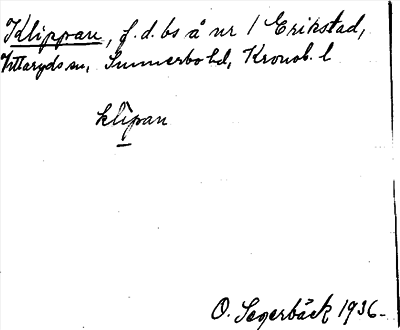 Klippan, f.d. bs å nr 1 Erikstad,
Vittaryds sn, Sunnerbo hd, Kronob. l
klipan
O. Segerbäck 1936-